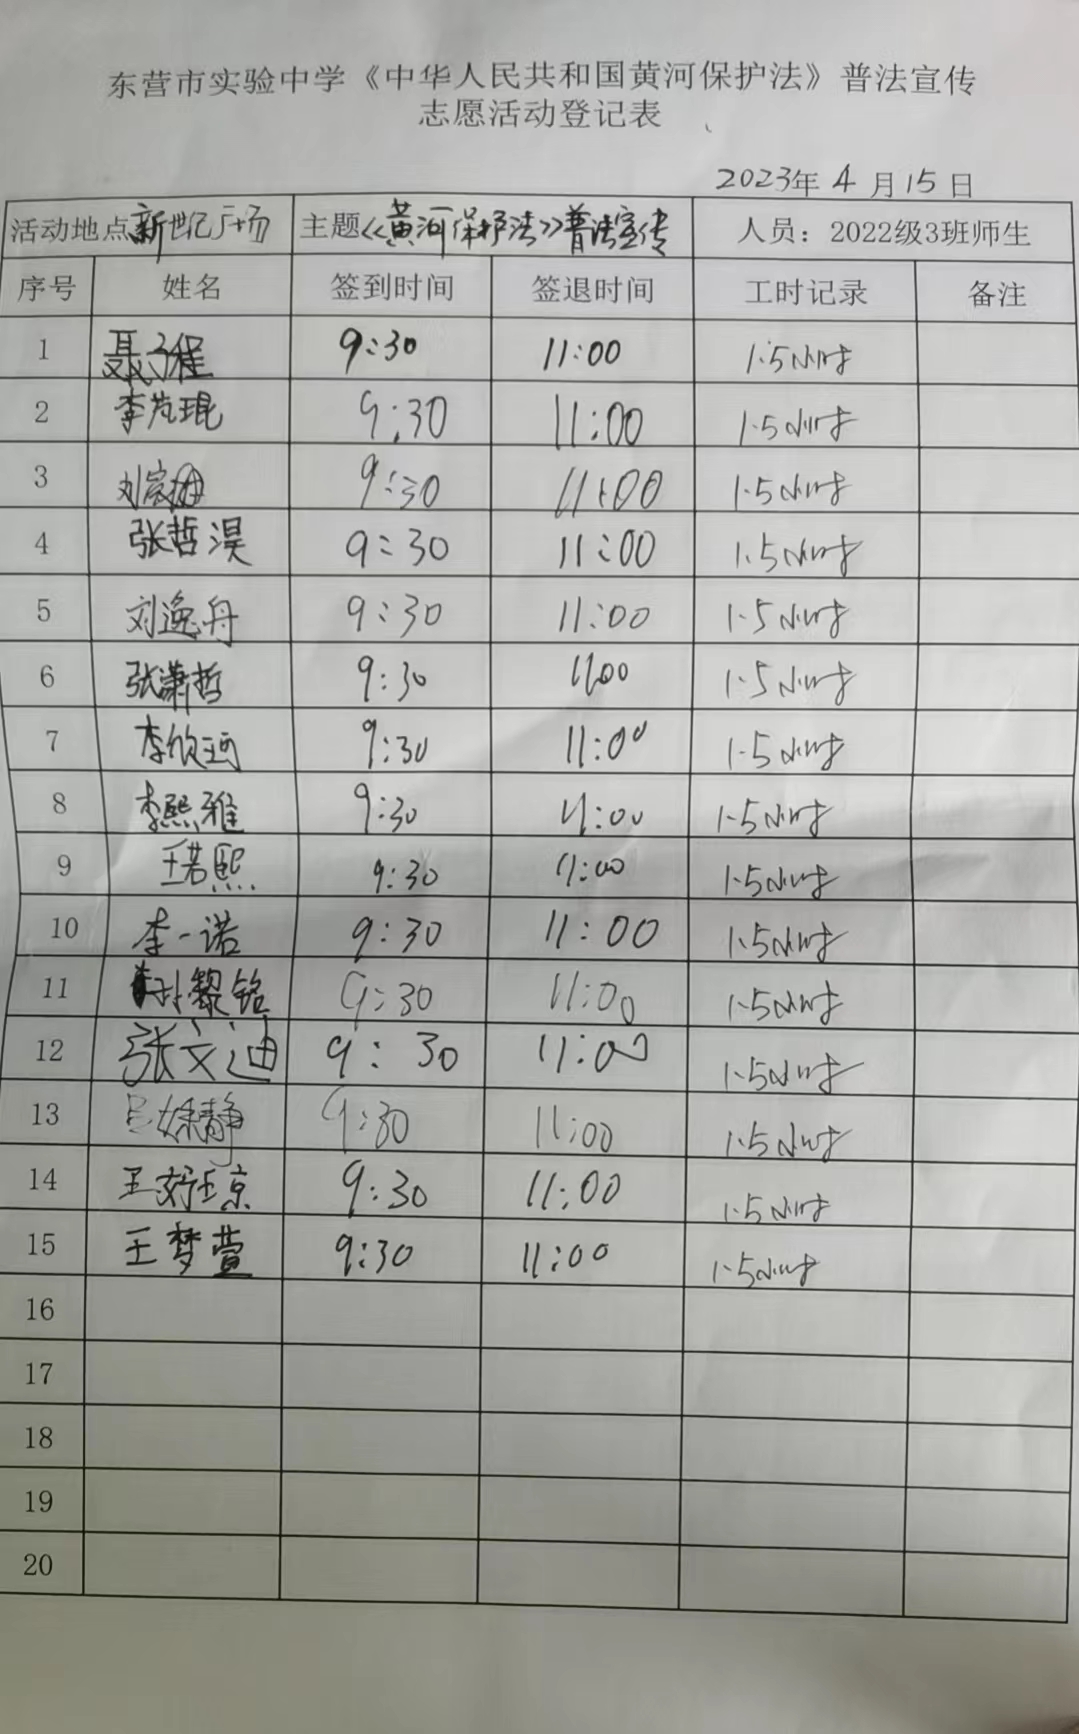 东营市实验中学《中华人民共和国黄河保护法》普法宣传
志愿活动登记表
2023年 4 月 15 日
活动地点 新世纪广场 主题《黄河保护法》普法宣传 人员：2022级3班师生
序号 姓名 签到时间 签退时间 工时记录 备注
1 聂子程 9:30 11:00 1.5小时
2 李芃琨 9:30 11:00 1.5小时
3 刘宗 9:30 11:00 1.5小时
4 张哲淏 9:30 11:00 1.5小时
5 刘逸舟 9:30 11:00 1.5小时
6 张潇哲 9:30 11:00 1.5小时
7 李欣珂 9:30 11:00 1.5小时
8 李熙雅 9:30 11:00 1.5小时
9 王若熙 9:30 11:00 1.5小时
10 李一诺 9:30 11:00 1.5小时
11 孙黎铭 9:30 11:00 1.5小时
12 张文迪 9:30 11:00 1.5小时
13 静 9:30 11:00 1.5小时
14 王妤琼 9:30 11:00 1.5小时
15 王梦萱 9:30 11:00 1.5小时
16
17
18
19
20